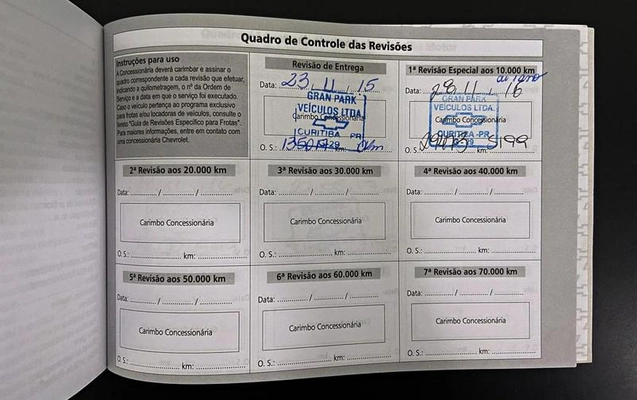 Quadro de Controle das Revisões
Instruções para uso
A Concessionária deverá carimbar e assinar o
quadro correspondente a cada revisão que efetuar,
indicando a quilometragem, o nº da Ordem de
Serviço e a data em que o serviço foi executado.
Caso o veículo pertença ao programa exclusivo
para frotas e/ou locadoras de veículos, consulte o
texto "Guia de Revisões Específico para Frotas".
Para maiores informações, entre em contato com
uma concessionária Chevrolet.
Revisão de Entrega
Data: 23 / 11 / 15
GRAN PARK
VEÍCULOS LTDA.
Carimbo Concessionária
CURITIBA PR
O. S.: km:
1ª Revisão Especial aos 10.000 km
Data: 28 / 11 / 16
GRAN PARK
VEÍCULOS LTDA.
Carimbo Concessionária
CURITIBA - PR
O. S.: 5199
2ª Revisão aos 20.000 km
Data: ......... / ......... / .........
Carimbo Concessionária
O. S.: .................. km: ..................
3ª Revisão aos 30.000 km
Data: ......... / ......... / .........
Carimbo Concessionária
O. S.: .................. km: ..................
4ª Revisão aos 40.000 km
Data: ......... / ......... / .........
Carimbo Concessionária
O. S.: .................. km: ..................
5ª Revisão aos 50.000 km
Data: ......... / ......... / .........
Carimbo Concessionária
O. S.: .................. km: ..................
6ª Revisão aos 60.000 km
Data: ......... / ......... / .........
Carimbo Concessionária
O. S.: .................. km: ..................
7ª Revisão aos 70.000 km
Data: ......... / ......... / .........
Carimbo Concessionária
O. S.: .................. km: ..................